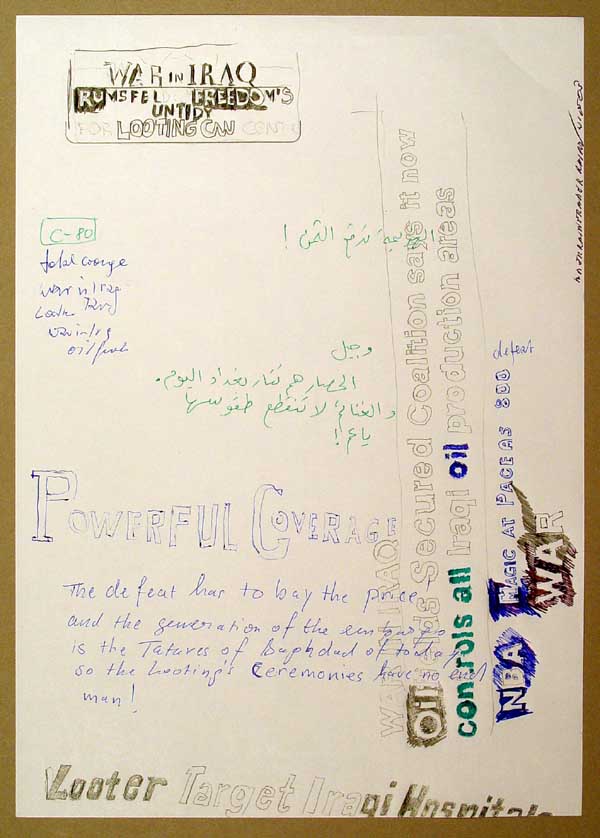 WAR IN IRAQ
RUMSFEL FREEDOM'S
UNTIDY
FOR LOOTING CNN
C-80
war in Iraq
الهزيمة تدفع الثمن !
وجيل
الحصار هم تتار بغداد اليوم.
والغنائم لا تنقطع طقوسها
ياعم !
POWERFUL COVERAGE
The defeat has to bay the price
and the generation of the
is the Tatares of Baghdad of today
so the Looting's Ceremonies have no end
man!
WAR IN IRAQ
Oil Secured Coalition says it now
controls all Iraqi oil production areas
defeat
NBA MAGIC AT 800
WAR
Looter Target Iraqi Hospitals